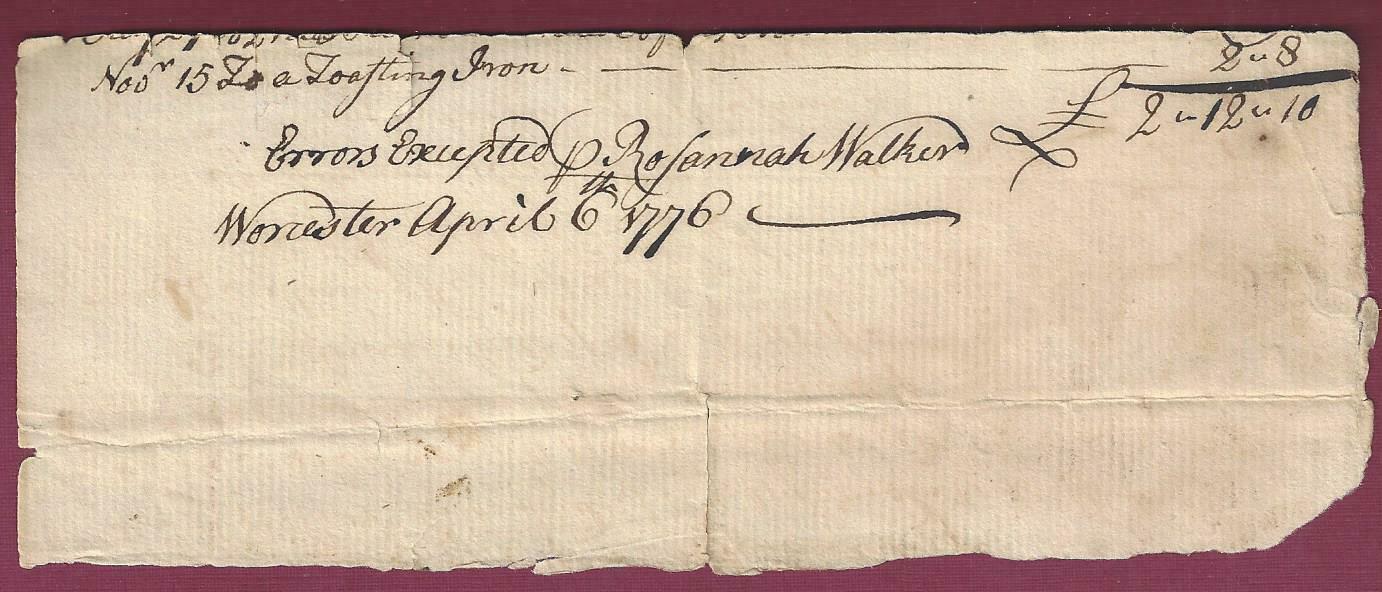 Novr 15 To a Toasting Iron 2 " 8
£ 2 " 12 " 10
Errors Excepted ⅌ Rosannah Walker
Worcester April 6th 1776